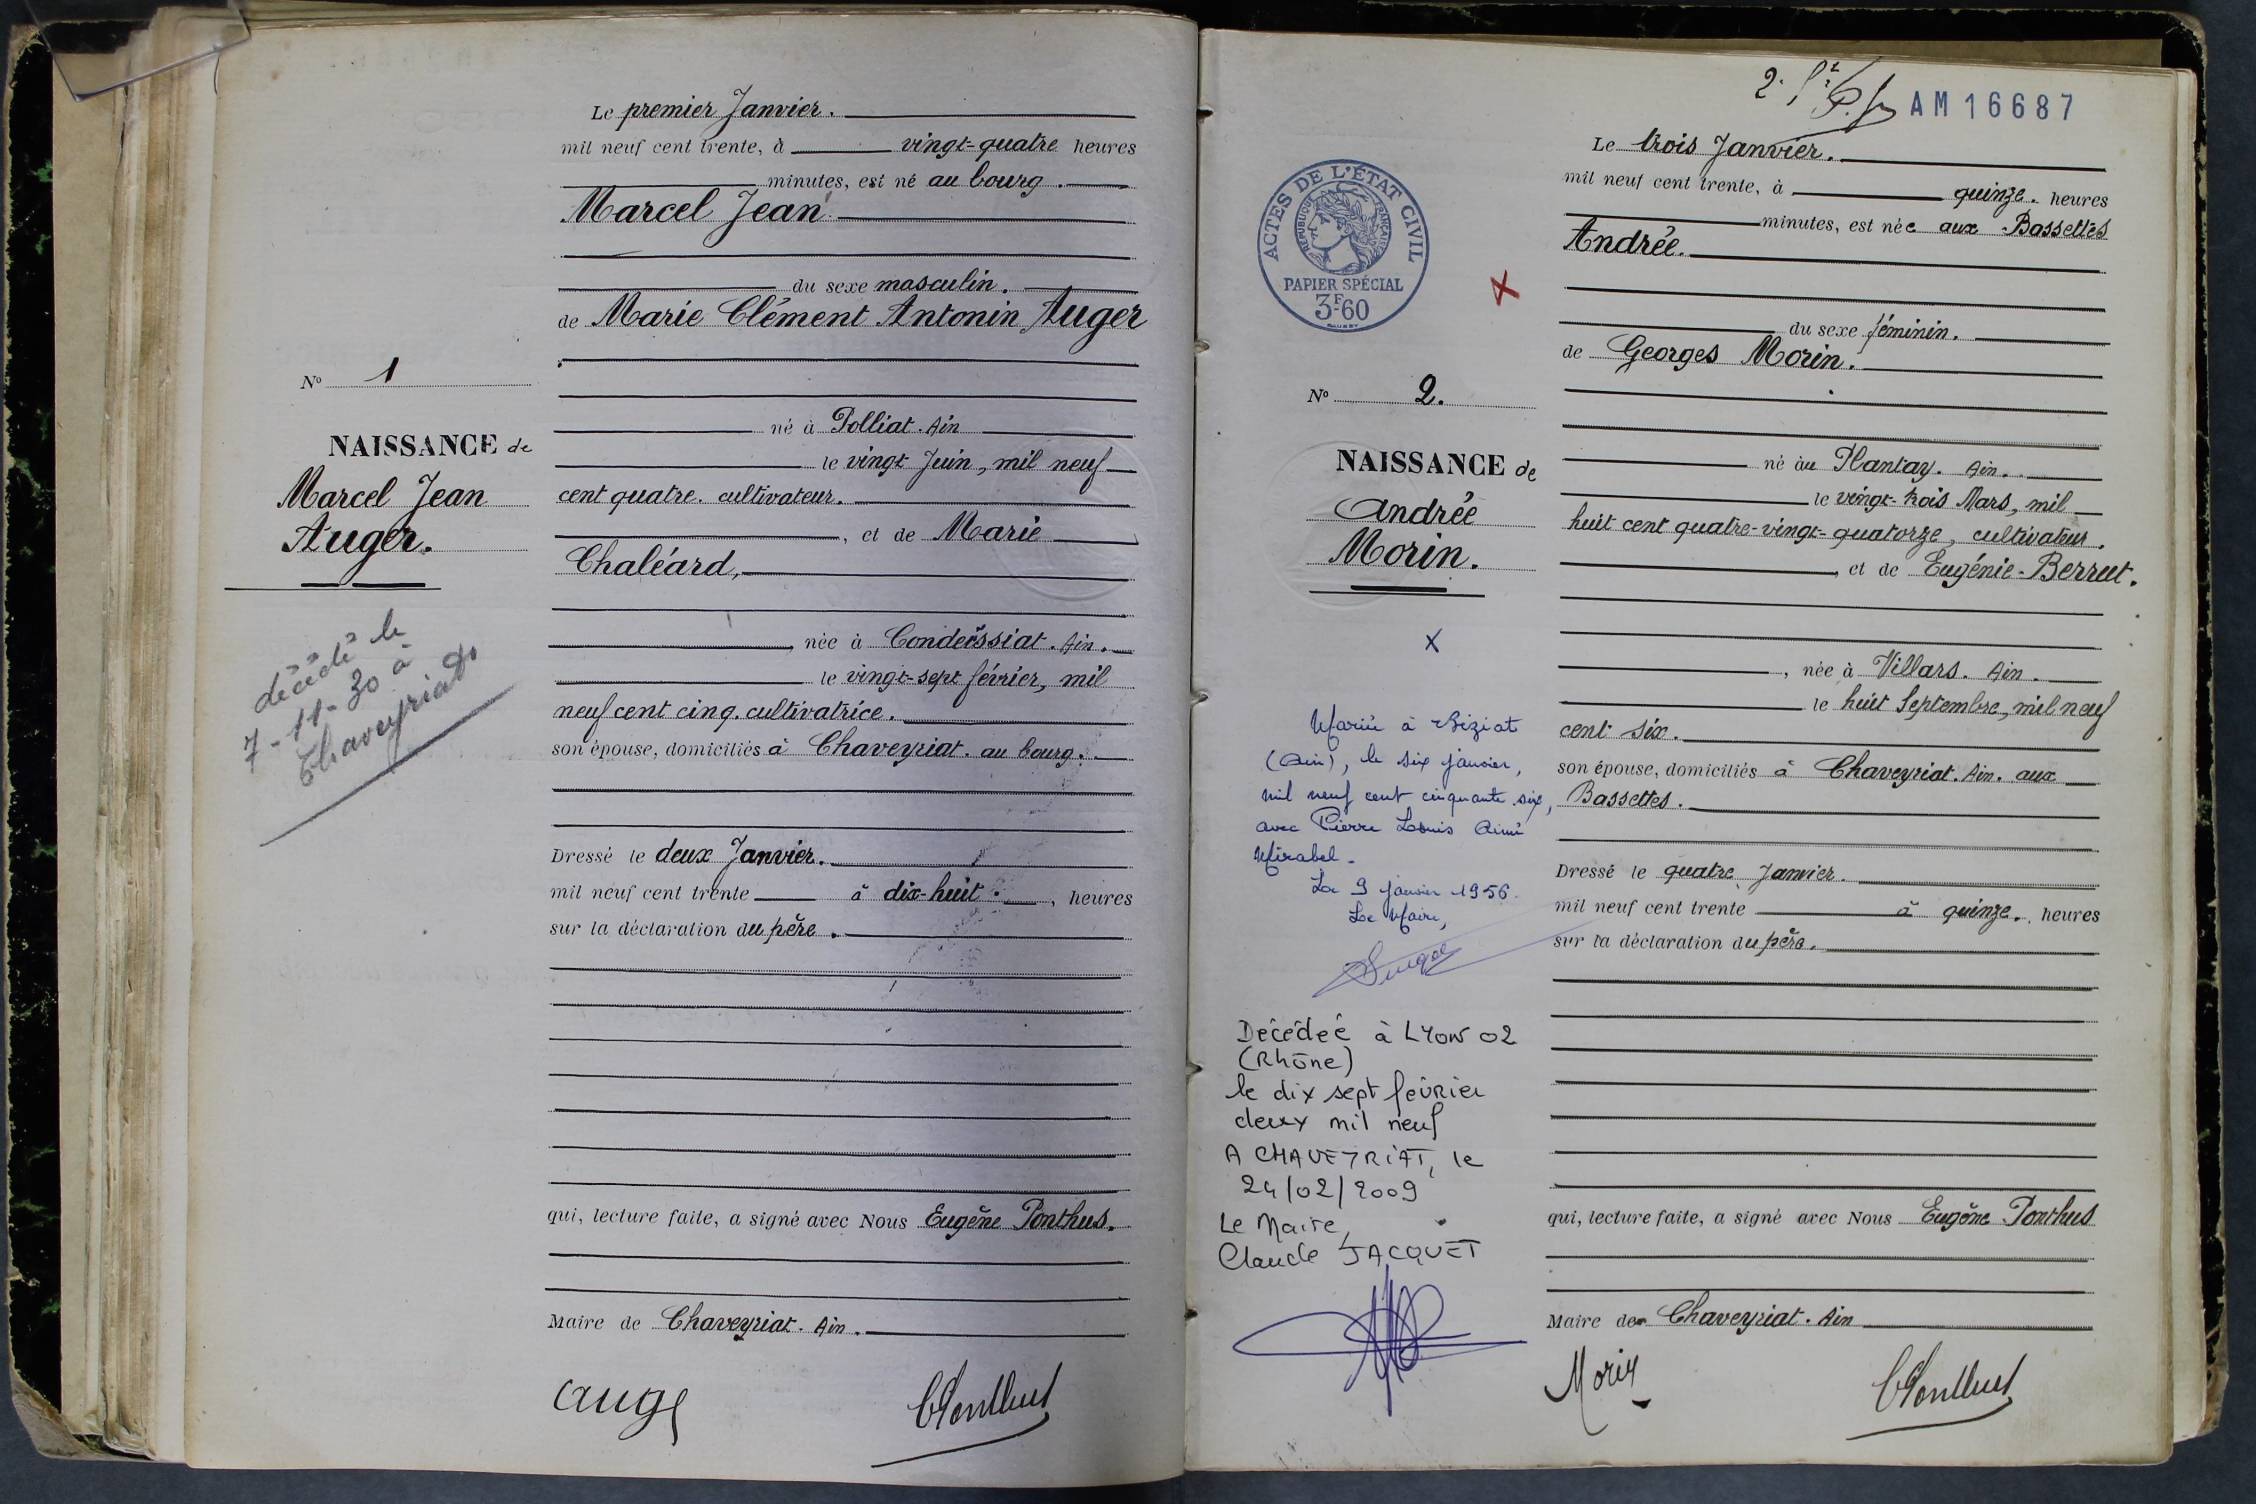 Le premier Janvier.
mil neuf cent trente, à vingt-quatre heures
minutes, est né au bourg.
Marcel Jean
du sexe masculin.
de Marie Clément Antonin Auger
N° 1
NAISSANCE de
Marcel Jean
Auger.
né à Polliat. Ain
le vingt Juin, mil neuf
cent quatre. cultivateur.
, et de Marie
Chaléard,
, née à Condeissiat. Ain.
le vingt-sept février, mil
neuf cent cinq. cultivatrice.
son épouse, domiciliés à Chaveyriat. au bourg.
décédé le
7-11-30 à
Chaveyriat
Dressé le deux Janvier.
mil neuf cent trente à dix-huit. , heures
sur la déclaration du père.
qui, lecture faite, a signé avec Nous Eugène Ponthus.
Maire de Chaveyriat. Ain.
Auge
Ponthus
AM16687
ACTES DE L'ÉTAT CIVIL
RÉPUBLIQUE FRANÇAISE
PAPIER SPÉCIAL
3F60
Le trois Janvier.
mil neuf cent trente, à quinze. heures
minutes, est née aux Bassettes
Andrée.
du sexe féminin.
de Georges Morin.
N° 2.
NAISSANCE de
Andrée
Morin.
né au Plantay. Ain.
le vingt-trois Mars, mil
huit cent quatre-vingt-quatorze, cultivateur.
, et de Eugénie-Berrut.
, née à Villars. Ain.
le huit Septembre, mil neuf
cent six.
son épouse, domiciliés à Chaveyriat. Ain. aux
Bassettes.
X
Mariée à Biziat
(Ain), le six janvier,
mil neuf cent cinquante six,
avec Pierre Louis Aimé
Mirabel.
Le 9 janvier 1956.
Le Maire,
Décédée à LYON 02
(Rhône)
le dix sept février
deux mil neuf
A CHAVEYRIAT, le
24/02/2009
Le Maire,
Claude JACQUET
Dressé le quatre Janvier.
mil neuf cent trente à quinze. heures
sur la déclaration du père.
qui, lecture faite, a signé avec Nous Eugène Ponthus
Maire de Chaveyriat. Ain
Morin
Ponthus